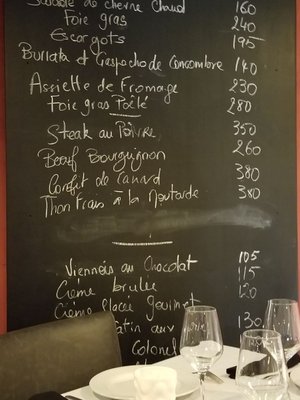 Salade de chèvre Chaud 160
Foie gras 240
Escargots 195
Burrata et Gaspacho de Concombre 140
Assiette de Fromage 230
Foie gras Poêlé 280
Steak au Poivre 350
Bœuf Bourguignon 260
Confit de Canard 380
Thon Frais à la Moutarde 380
Viennois au Chocolat 105
Crème brulée 115
Crème Glacée gourmet 120
aux 130
Colonel